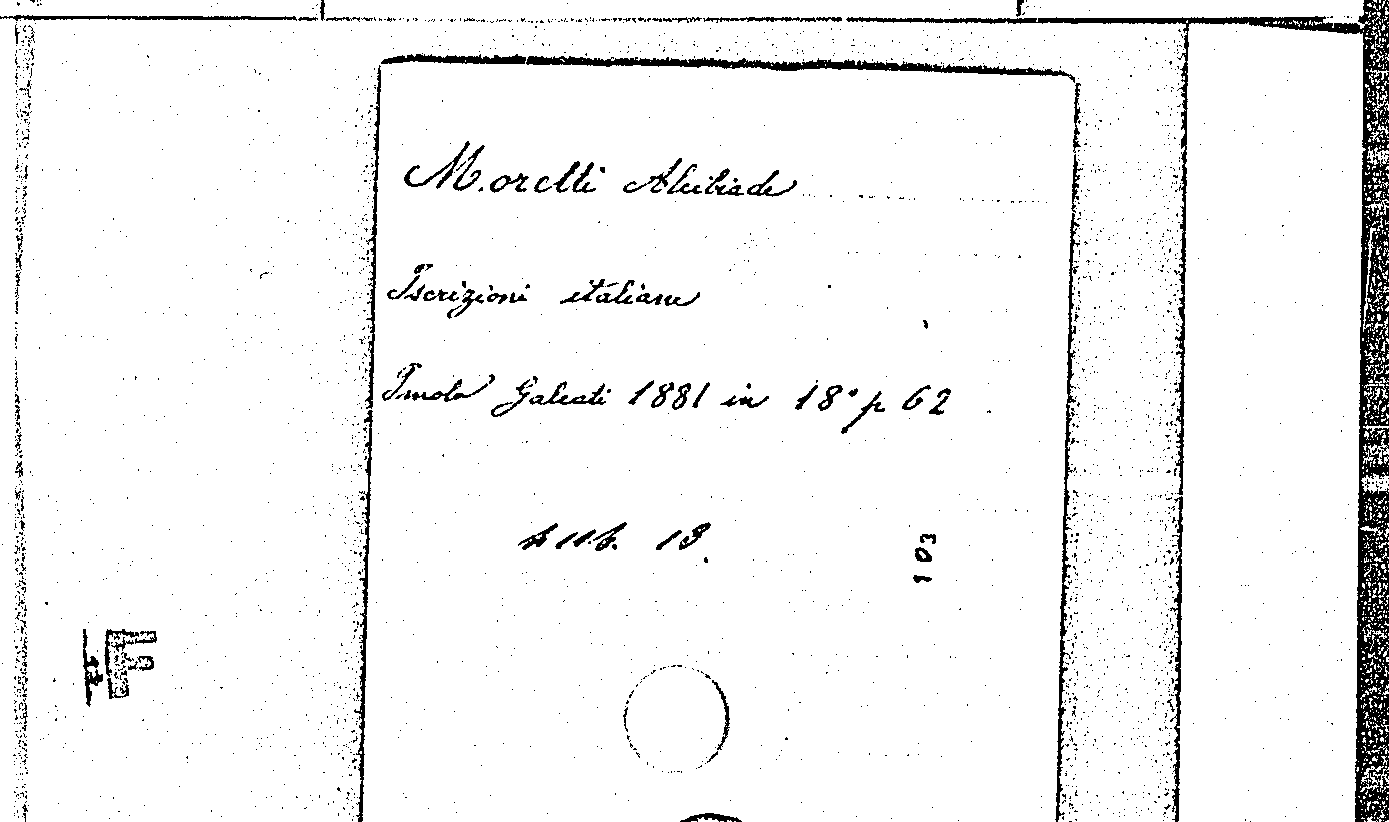 Moretti Alcibiade
Iscrizioni italiane
Imola Galeati 1881 in 18° p 62
13
103
F